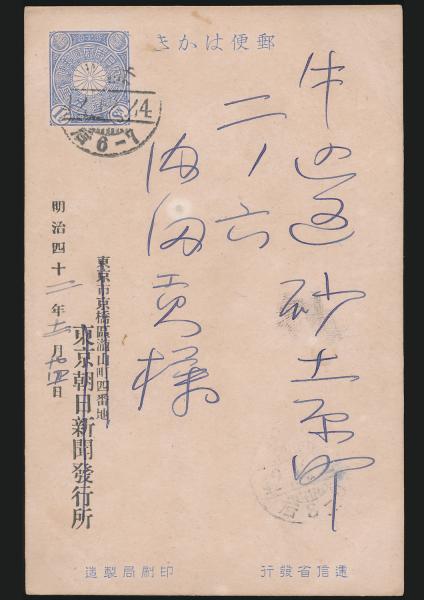 郵便はかき
牛込區砂土原町
二ノ六
內田貢樣
東京市京橋區瀧山町四番地
東京朝日新聞發行所
明治四十二年十二月十四日
6-7
遞信省發行
印刷局製造